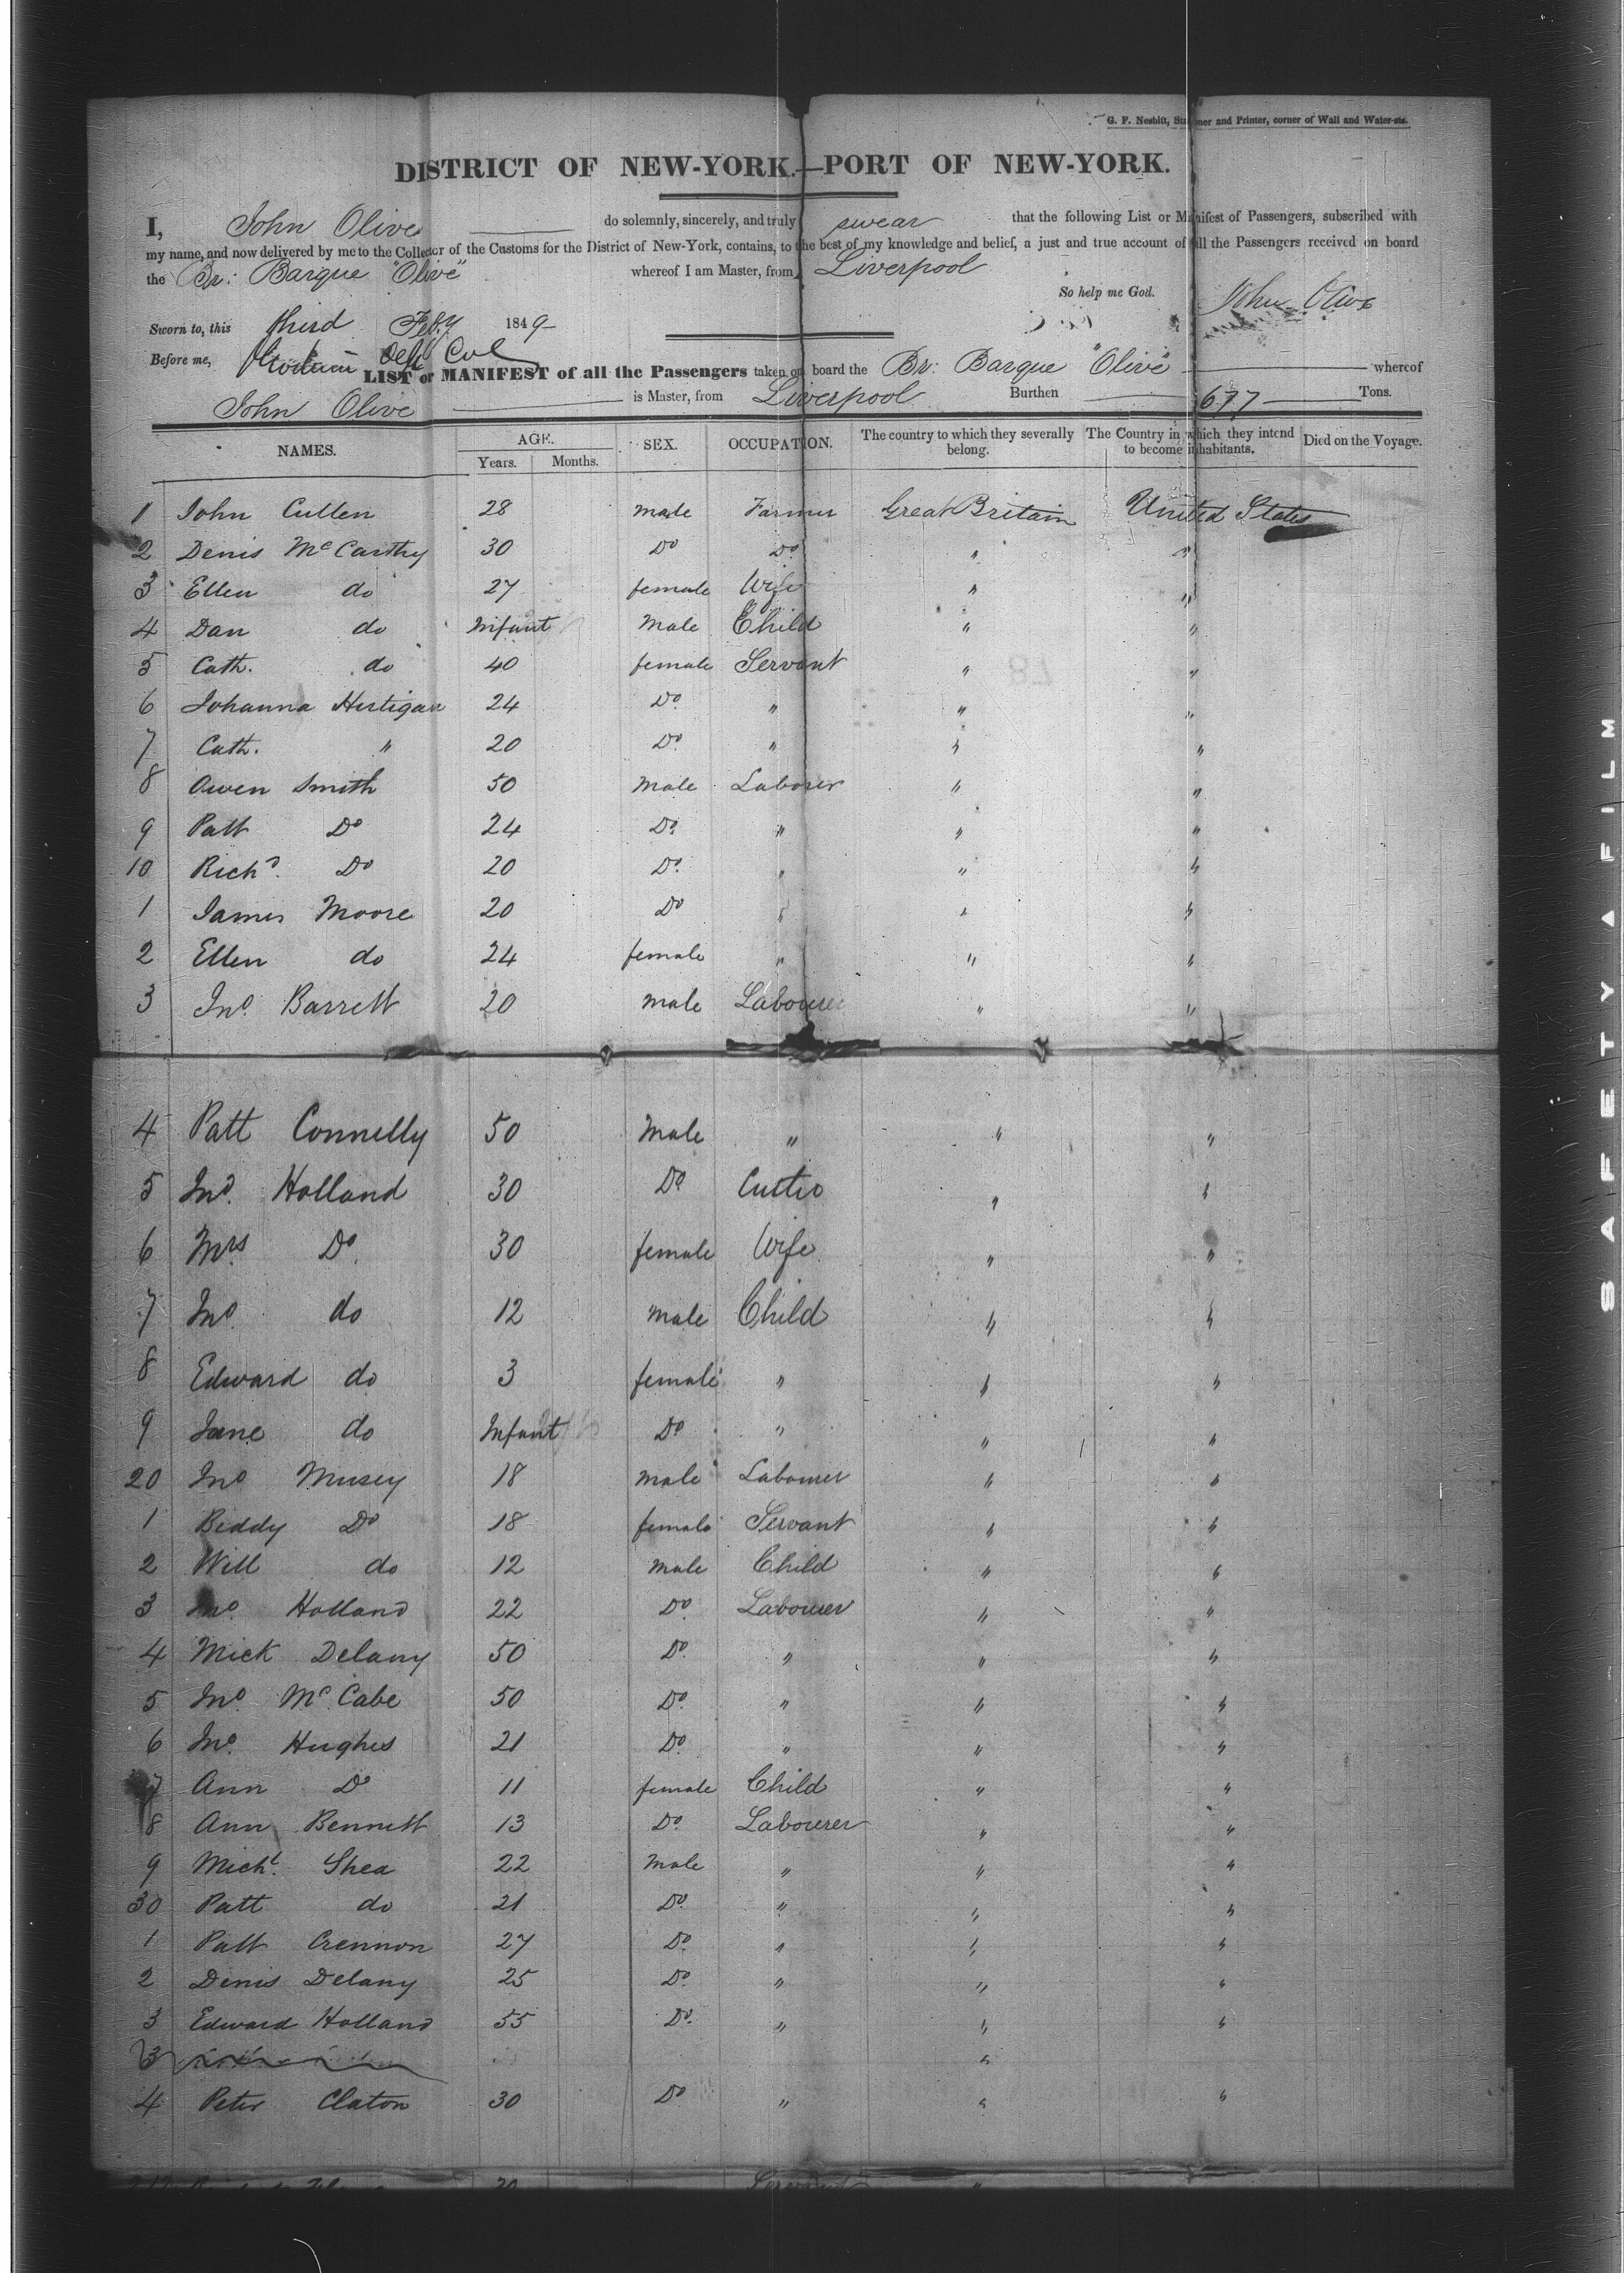 G. F. Nesbitt, Stationer and Printer, corner of Wall and Water-sts.
DISTRICT OF NEW-YORK.—PORT OF NEW-YORK.
I, John Olive do solemnly, sincerely, and truly swear that the following List or Manifest of Passengers, subscribed with
my name, and now delivered by me to the Collector of the Customs for the District of New-York, contains, to the best of my knowledge and belief, a just and true account of all the Passengers received on board
the Br: Barque "Olive" whereof I am Master, from Liverpool
So help me God. John Olive
Sworn to, this third Feby 1849
Before me, Dep Col
LIST or MANIFEST of all the Passengers taken on board the Br: Barque "Olive" whereof
John Olive is Master, from Liverpool Burthen 677 Tons.
NAMES. AGE. SEX. OCCUPATION. The country to which they severally belong. The Country in which they intend to become inhabitants. Died on the Voyage.
Years. Months.
1 John Cullen 28 male Farmer Great Britain United States
2 Denis McCarthy 30 Do Do " "
3 Ellen do 27 female Wife " "
4 Dan do Infant Male Child " "
5 Cath. do 40 female Servant " "
6 Johanna Hertigan 24 Do " " "
7 Cath. " 20 Do " " "
8 Owen Smith 50 Male Laborer " "
9 Patt Do 24 Do " " "
10 Richd. Do 20 Do " " "
1 James Moore 20 Do " " "
2 Ellen do 24 female " " "
3 Jno. Barrett 20 male Labourer " "
4 Patt Connelly 50 Male " " "
5 Jno. Holland 30 Do " "
6 Mrs Do 30 female Wife " "
7 Jno. do 12 Male Child " "
8 Edward do 3 female " " "
9 Jane do Infant Do " " "
20 Jno Musey 18 male Labourer " "
1 Biddy Do 18 female Servant " "
2 Will do 12 Male Child " "
3 Jno. Holland 22 Do Labourer " "
4 Mick Delany 50 Do " " "
5 Jno. McCabe 50 Do " " "
6 Jno. Hughes 21 Do " " "
7 Ann Do 11 female Child " "
8 Ann Bennett 13 Do Labourer " "
9 Michl. Shea 22 Male " " "
30 Patt do 21 Do " " "
1 Patt Crennon 27 Do " " "
2 Denis Delany 25 Do " " "
3 Edward Holland 55 Do " " "
3 "
4 Peter Claton 30 Do " " "
20 Servant "
SAFETY A FILM